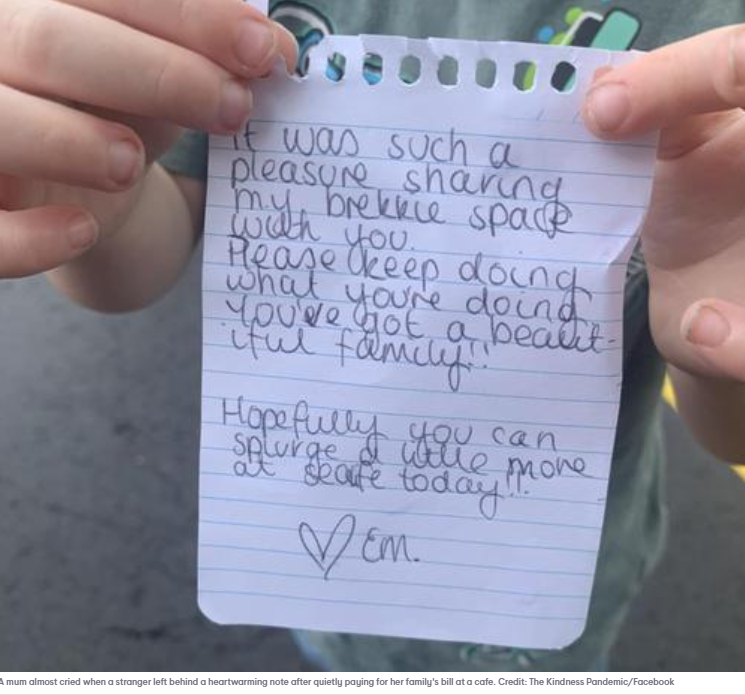 It was such a
pleasure sharing
my brekkie space
with you.
Please keep doing
what you're doing
You've got a beaut-
iful family!!
Hopefully you can
splurge a little more
at skate today!!
♡ Em.
A mum almost cried when a stranger left behind a heartwarming note after quietly paying for her family's bill at a cafe. Credit: The Kindness Pandemic/Facebook